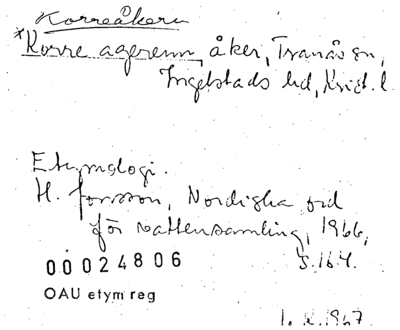 Korreåkern
*Korre agerenn, åker, Tranås sn,
Ingelstads hd, Krist. l.
Etymologi.
H. Jonsson, Nordiska ord
för vattensamling, 1966,
S. 164.
00024806
OAU etym reg
1967